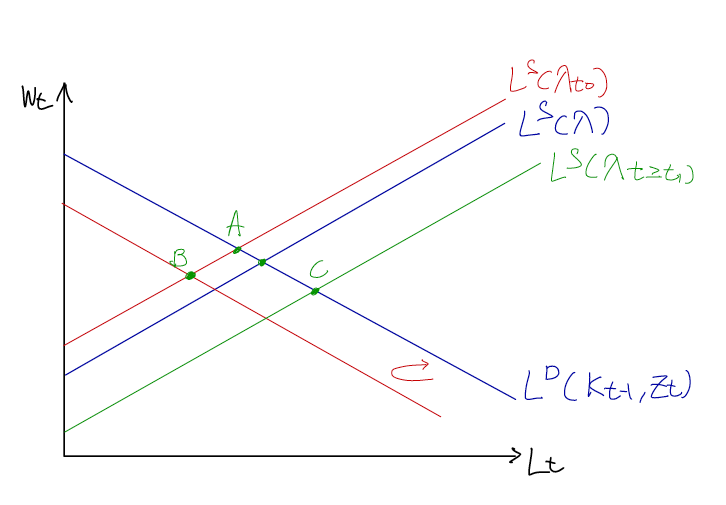 Lˢ(λt₀)
Wt
Lˢ(λ)
Lˢ(λt≥t₁)
A
B
C
Lᴰ(Kt-1, Zt)
Lt